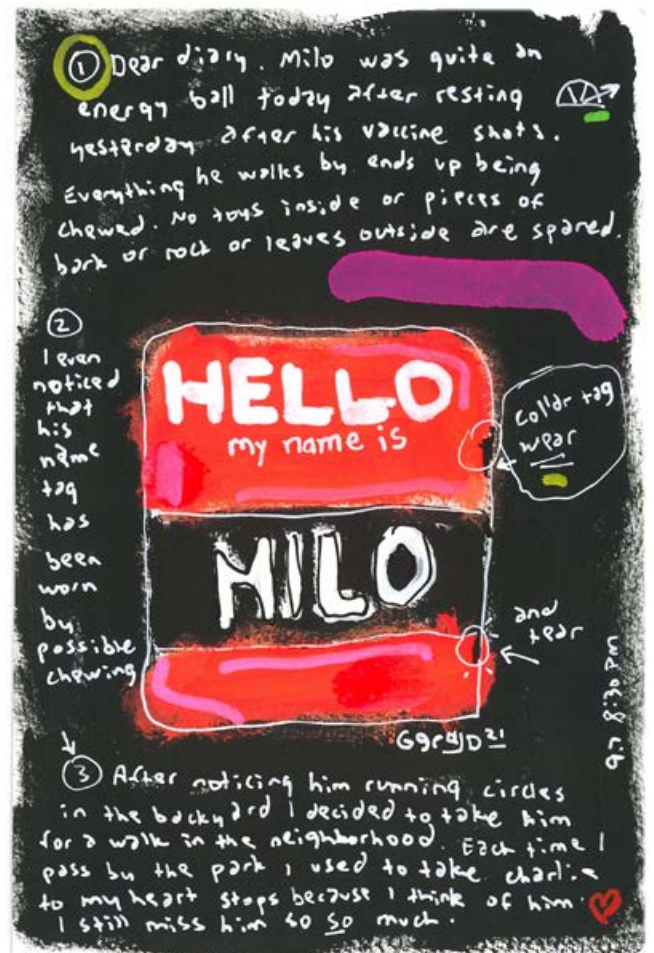 1 Dear diary. Milo was quite an
energy ball today after resting
yesterday after his vaccine shots.
Everything he walks by ends up being
chewed. No toys inside or pieces of
bark or rock or leaves outside are spared.
2
I even
noticed
that
his
name
tag
has
been
worn
by
possible
chewing
HELLO
my name is
MILO
collar tag
wear
and
tear
9.7 8:30 PM
3 After noticing him running circles
in the backyard I decided to take him
for a walk in the neighborhood. Each time I
pass by the park I used to take charlie
to my heart stops because I think of him.
I still miss him so so much.